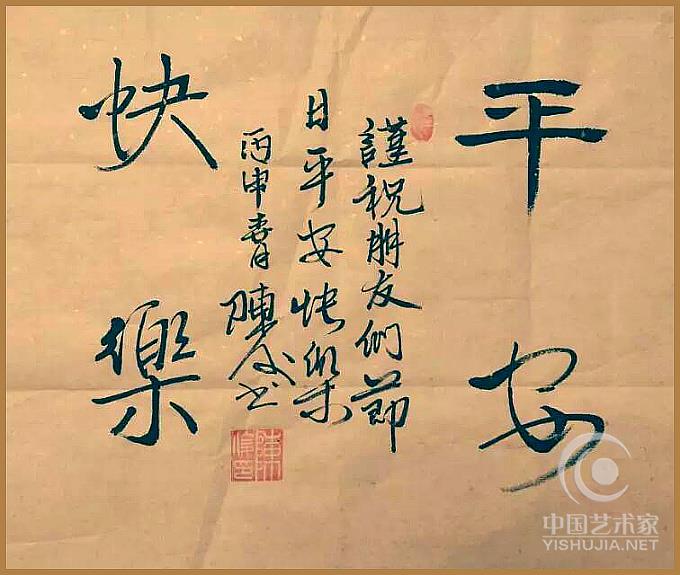 平安
謹祝朋友们節
日平安快樂
丙申春月陳
書
快樂
中国艺术家
YISHUJIA.NET